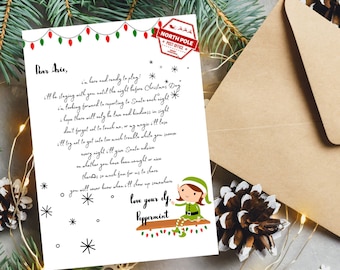 NORTH POLE
Dear Arie,
i'm here and ready to play!
i'll be staying with you until the night before Christmas Day
i'm looking forward to reporting to Santa each night
i hope there will only be love and kindness in sight
don't forget not to touch me, or my magic i'll lose
i'll try not to get into too much trouble while you snooze
every night i'll give Santa advice
on whether you have been naughty or nice
there's so much fun for us to share
you will never know when i'll show up somewhere
Love your elf,
Peppermint